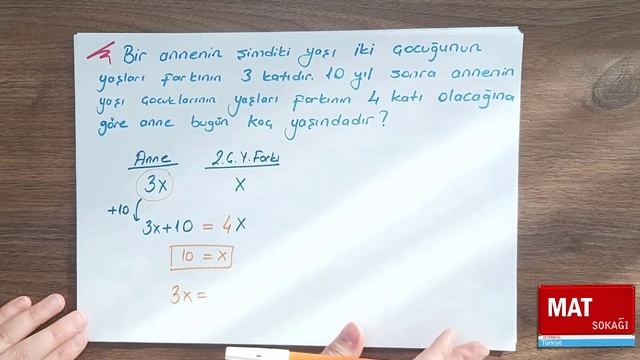 Bir annenin şimdiki yaşı iki çocuğunun
yaşları farkının 3 katıdır. 10 yıl sonra annenin
yaşı çocuklarının yaşları farkının 4 katı olacağına
göre anne bugün kaç yaşındadır?
Anne 2.Ç.Y.Farkı
3x x
+10
3x+10 = 4x
10 = x
3x =
MAT
SOKAĞI
İSTANBUL
Türkiye